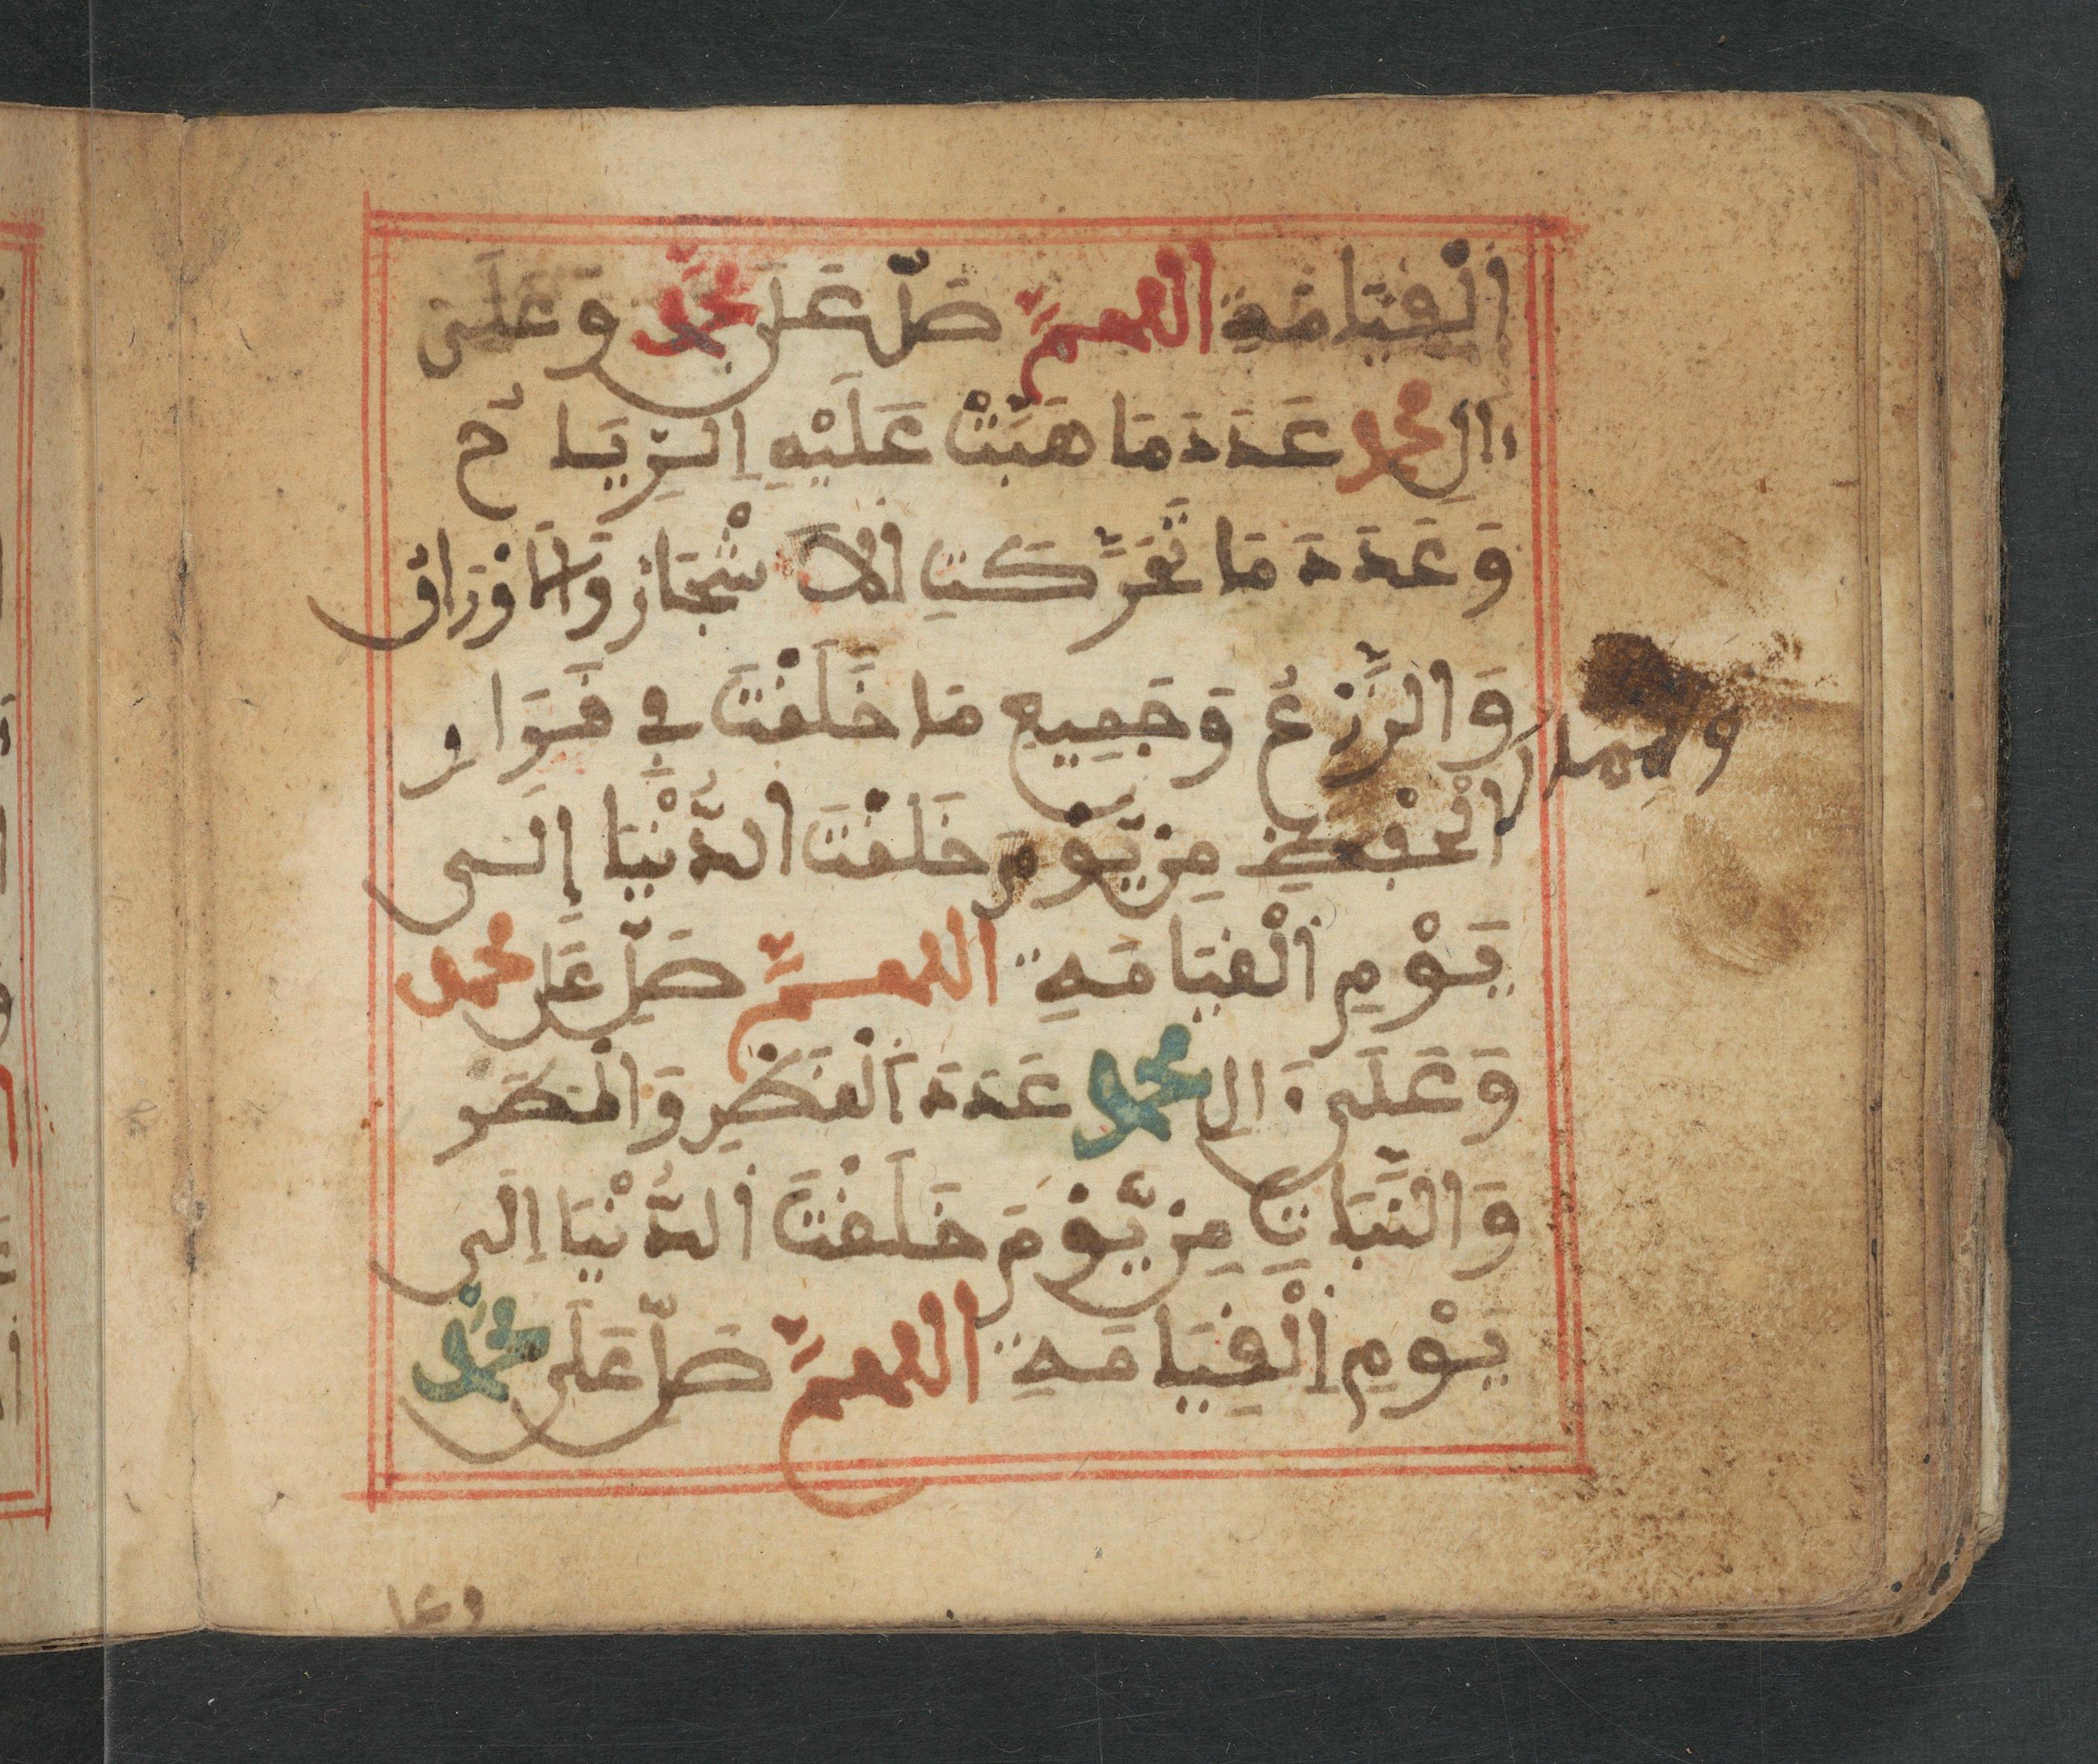 اَلْقِيَامَةِ اللهمَّ صَلِّ عَلَى مُحَمَّد وَعَلَى
ءالِ محمد عَدَدَ مَا هَبَّتْ عَلَيْهِ اِلرِّيَاحُ
وَعَدَدَ مَا تَحَرَّكَتِ اِلَاشْجَارُ وَالَاوْرَاقُ
وَالزَّرْعُ وَجَمِيعِ مَا خَلَقْتَ فِي قَرَارِ
اَلْحِفْظِ مِن يَّوْمِ خَلَقْتَ اَلدُّنْيَا إِلَى
يَوْمِ اِلْقِيَامَةِ اللهمَّ صَلِّ عَلَى محمد
وَعَلَىٰ ءَالِ محمد عَدَدَ اَلْقَطْرِ وَالْمَطَرِ
وَالنَّبَاتِ مِن يَّوْمَ خَلَقْتَ اَلدُّنْيَا إِلَى
يَوْمِ اِلْقِيَامَةِ اللهمَّ صَلِّ عَلَى مُحَمَّد
وعلى